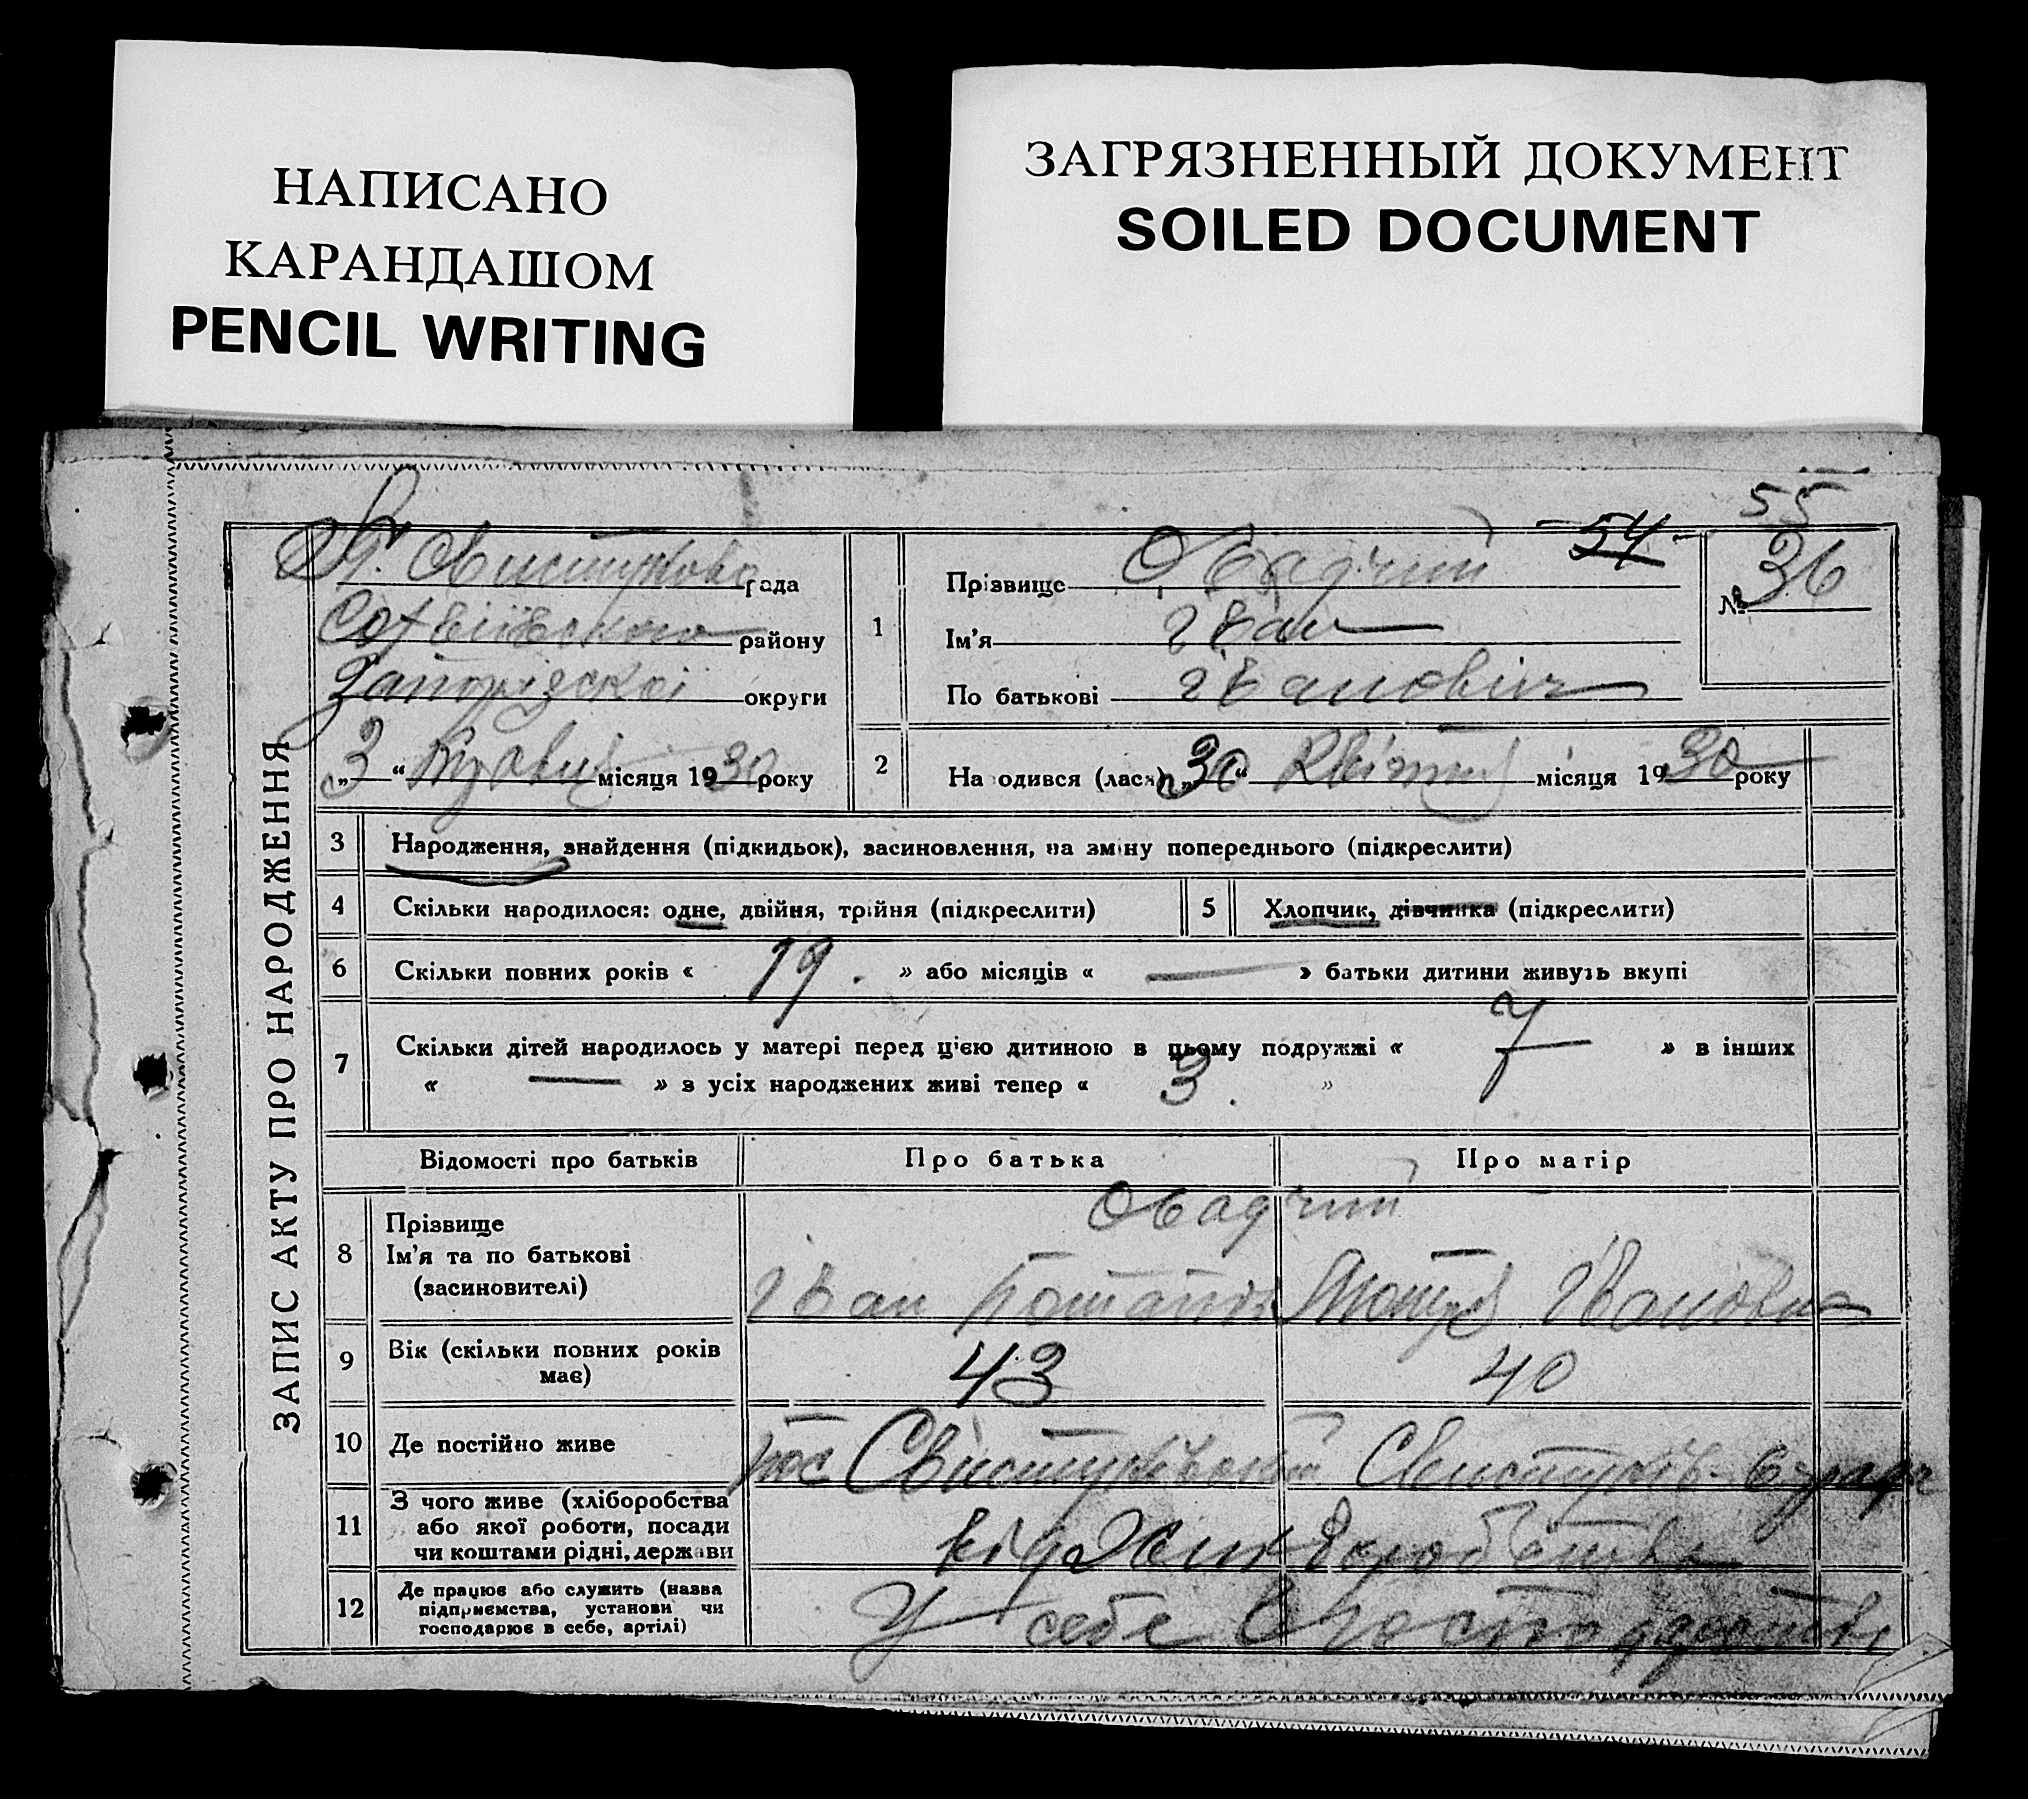 НАПИСАНО
КАРАНДАШОМ
PENCIL WRITING
ЗАГРЯЗНЕННЫЙ ДОКУМЕНТ
SOILED DOCUMENT
55
54
№ 36
ЗАПИС АКТУ ПРО НАРОДЖЕННЯ
рада
Софіївського району
Запорізскої округи
„3“ місяця 1930 року
1
Прізвище Овадчий
Ім'я Іван
По батькові Іванович
2
Народився (лася) „30“ Квітня місяця 1930 року
3 Народження, знайдення (підкидьок), засиновлення, на зміну попереднього (підкреслити)
4 Скільки народилося: одне, двійня, трійня (підкреслити)
5 Хлопчик, дівчинка (підкреслити)
6 Скільки повних років « 19. » або місяців « — » батьки дитини живуть вкупі
7 Скільки дітей народилось у матері перед цією дитиною в цьому подружжі « 7 » в інших
« — » з усіх народжених живі тепер « 3. »
Відомості про батьків
Про батька
Про матір
8 Прізвище
Ім'я та по батькові
(засновителі)
Овадчий
Іван Івановна
9 Вік (скільки повних років
має)
43
40
10 Де постійно живе
11 З чого живе (хліборобства
або якої роботи, посади
чи коштами рідні, держави
від
12 Де працює або служить (назва
підприємства, установи чи
господарює в себе, артілі)
У себе в